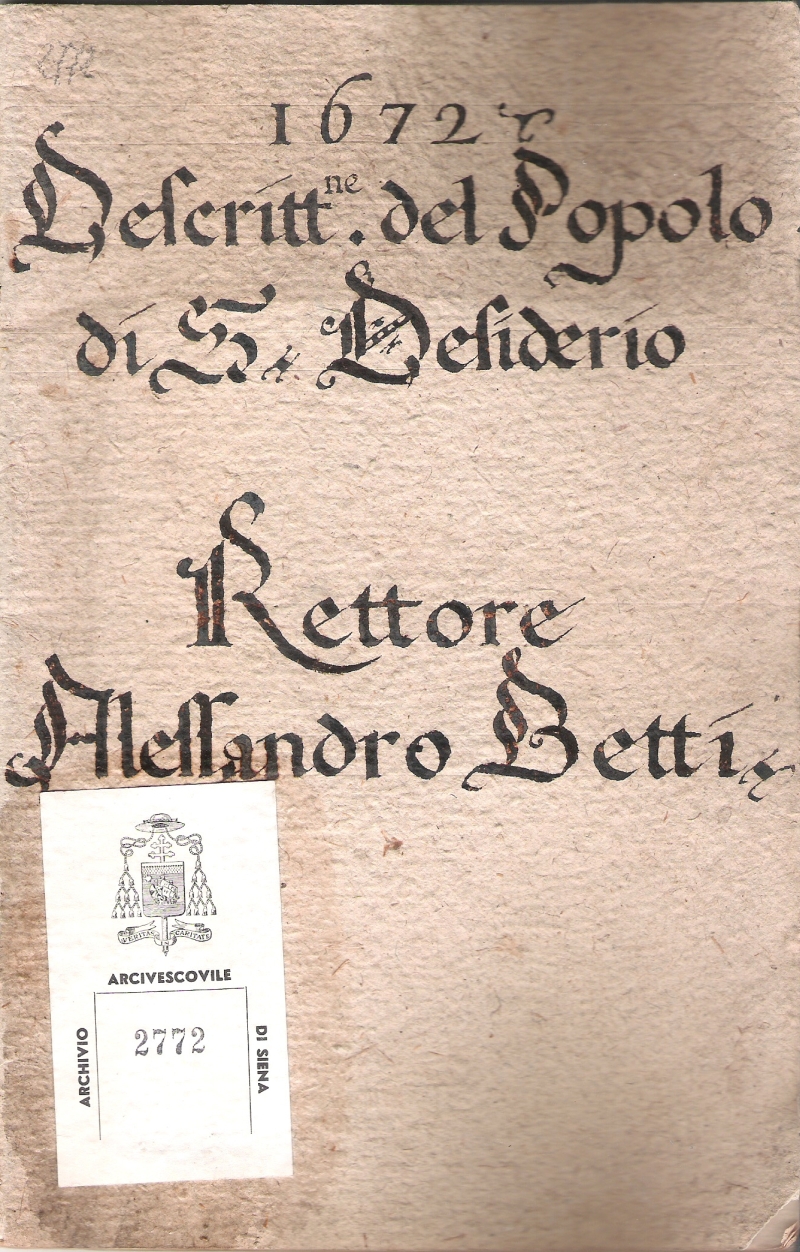 2772
1672
Descritt.ne del Popolo
di S. Desiderio
Rettore
Alessandro Betti
VERITAS CARITATE
ARCIVESCOVILE
ARCHIVIO
2772
DI SIENA